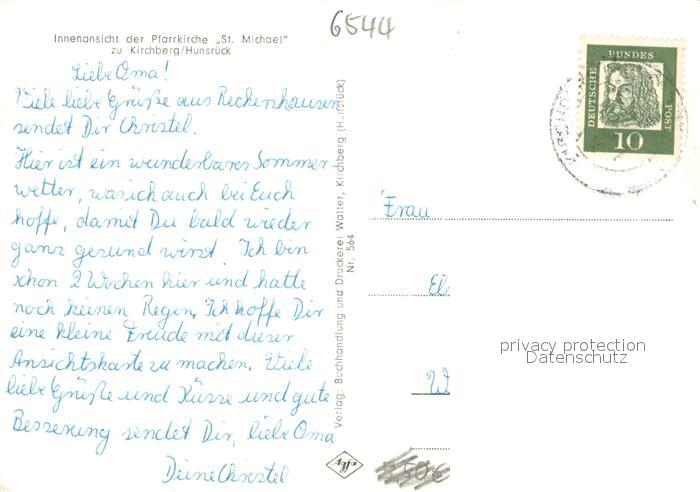 6544
Innenansicht der Pfarrkirche „St. Michael"
zu Kirchberg/Hunsrück
Liebe Oma!
Viele liebe Grüße aus Reckershausen
sendet Dir Christel.
Hier ist ein wunderbares Sommer-
wetter, was ich auch bei Euch
hoffe, damit Du bald wieder
ganz gesund wirst. Ich bin
schon 2 Wochen hier und hatte
noch keinen Regen. Ich hoffe Dir
eine kleine Freude mit dieser
Ansichtskarte zu machen. Viele
liebe Grüße und Küsse und gute
Besserung sendet Dir, liebe Oma
Deine Christel
Verlag: Buchhandlung und Druckerei Walter, Kirchberg (Hunsrück)
Nr. 564
DEUTSCHE
BUNDES
POST
10
Frau
El
W
privacy protection
Datenschutz
50€